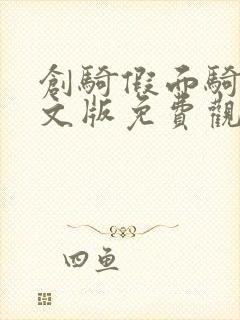 創騎假面騎
文版免費觀
四鱼